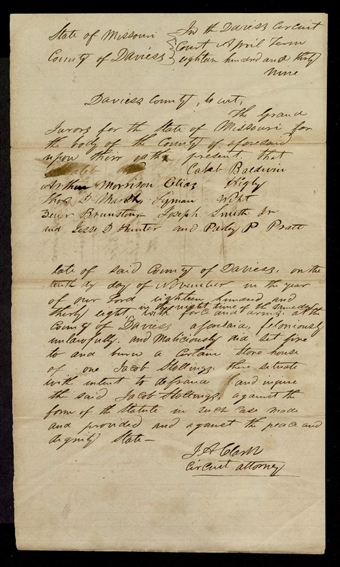 State of Missouri In the Daviess Circuit
County of Daviess Court April Term
eighteen hundred and thirty
nine
Daviess County, to wit,
The Grand
Jurors for the State of Missouri for
the body of the County of aforesaid
upon their oath present that
Caleb Baldwin
Arthur Morrison Elias Higby
Thos D Marsh Lyman Wight
Joseph Smith Jr
and Jesse D Hunter and Parley P Pratt
late of said County of Daviess, on the
tenth day of November in the year
of our Lord eighteen hundred and
thirty eight in the night time of the same day
with force and arms at the
County of Daviess aforesaid, feloniously
unlawfully and Maliciously did set fire
to and burn a Certain Store house
of one Jacob Stollings there situate
with intent to defraud and injure
the said Jacob Stollings, against the
form of the Statute in such case made
and provided and against the peace and
dignity State—
J A Clark
Circuit attorney